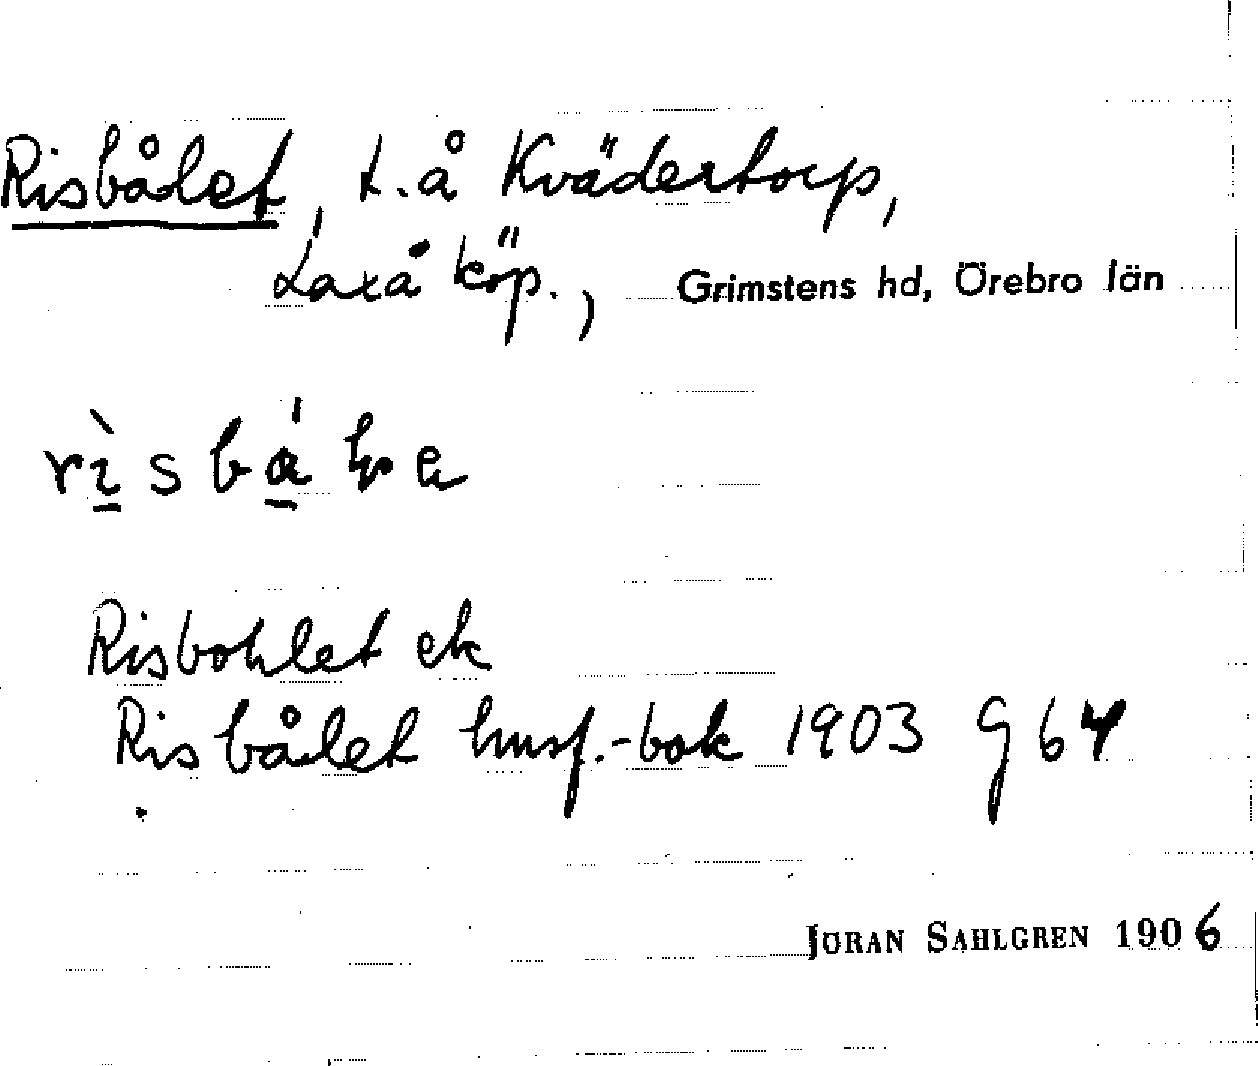 Risbålet, t. å Kvädertorp,
Laxå köp., Grimstens hd, Örebro län
Risbohlet ek
Risbålet husf.-bok 1903 G 64
JÖRAN SAHLGREN 1906